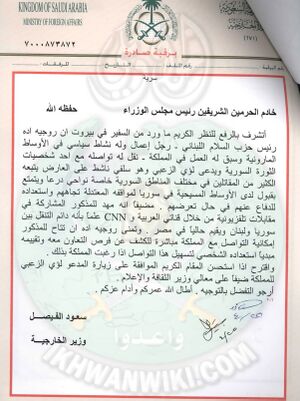 KINGDOM OF SAUDI ARABIA
MINISTRY OF FOREIGN AFFAIRS
٧٠٠٠٨٧٣٨٧٢
برقية صادرة
(٢٧١)
الرقم
التاريخ
المرفقات
سرية
خادم الحرمين الشريفين رئيس مجلس الوزراء حفظه الله
أتشرف بالرفع للنظر الكريم ما ورد من السفير في بيروت ان روجيه اده
رئيس حزب السلام اللبناني. رجل إعمال وله نشاط سياسي في الأوساط
المارونية وسبق له العمل في المملكة. نقل له تواصله مع احد شخصيات
الثورة السورية ويدعى لؤي الزعبي وهو سلفي ناشط على العارض يتبعه
الكثير من المقاتلين في مختلف المناطق السورية خاصة نواحي درعا ويتمتع
بقبول لدى الأوساط المسيحية في سوريا لموافقه المعتدلة تجاههم واستعداده
للدفاع عنهم في حال تعرضهم. مضيفاً انه مهد للمذكور المشاركة في
مقابلات تلفزيونية من خلال قناتي العربية و CNN علما بأنه دائم التنقل بين
سوريا ولبنان ويقيم حالياً في مصر. وتمنى روجيه اده ان تتاح للمذكور
إمكانية التواصل مع المملكة مباشرة للكشف عن فرص التعاون معه وتقييمه
مبدياً استعداده الشخصي لتسهيل هذا التواصل اذا رغبت المملكة بذلك.
واقترح اذا استحسن المقام الكريم الموافقة على زيارة المدعو لؤي الزعبي
للمملكة ضيفاً على معالي وزير الثقافة والإعلام.
أرجو التفضل بالتوجيه. أطال الله عمركم وأدام عزكم.
سعود الفيصل
وزير الخارجية
واعدوا
IKHWANWIKI.COM